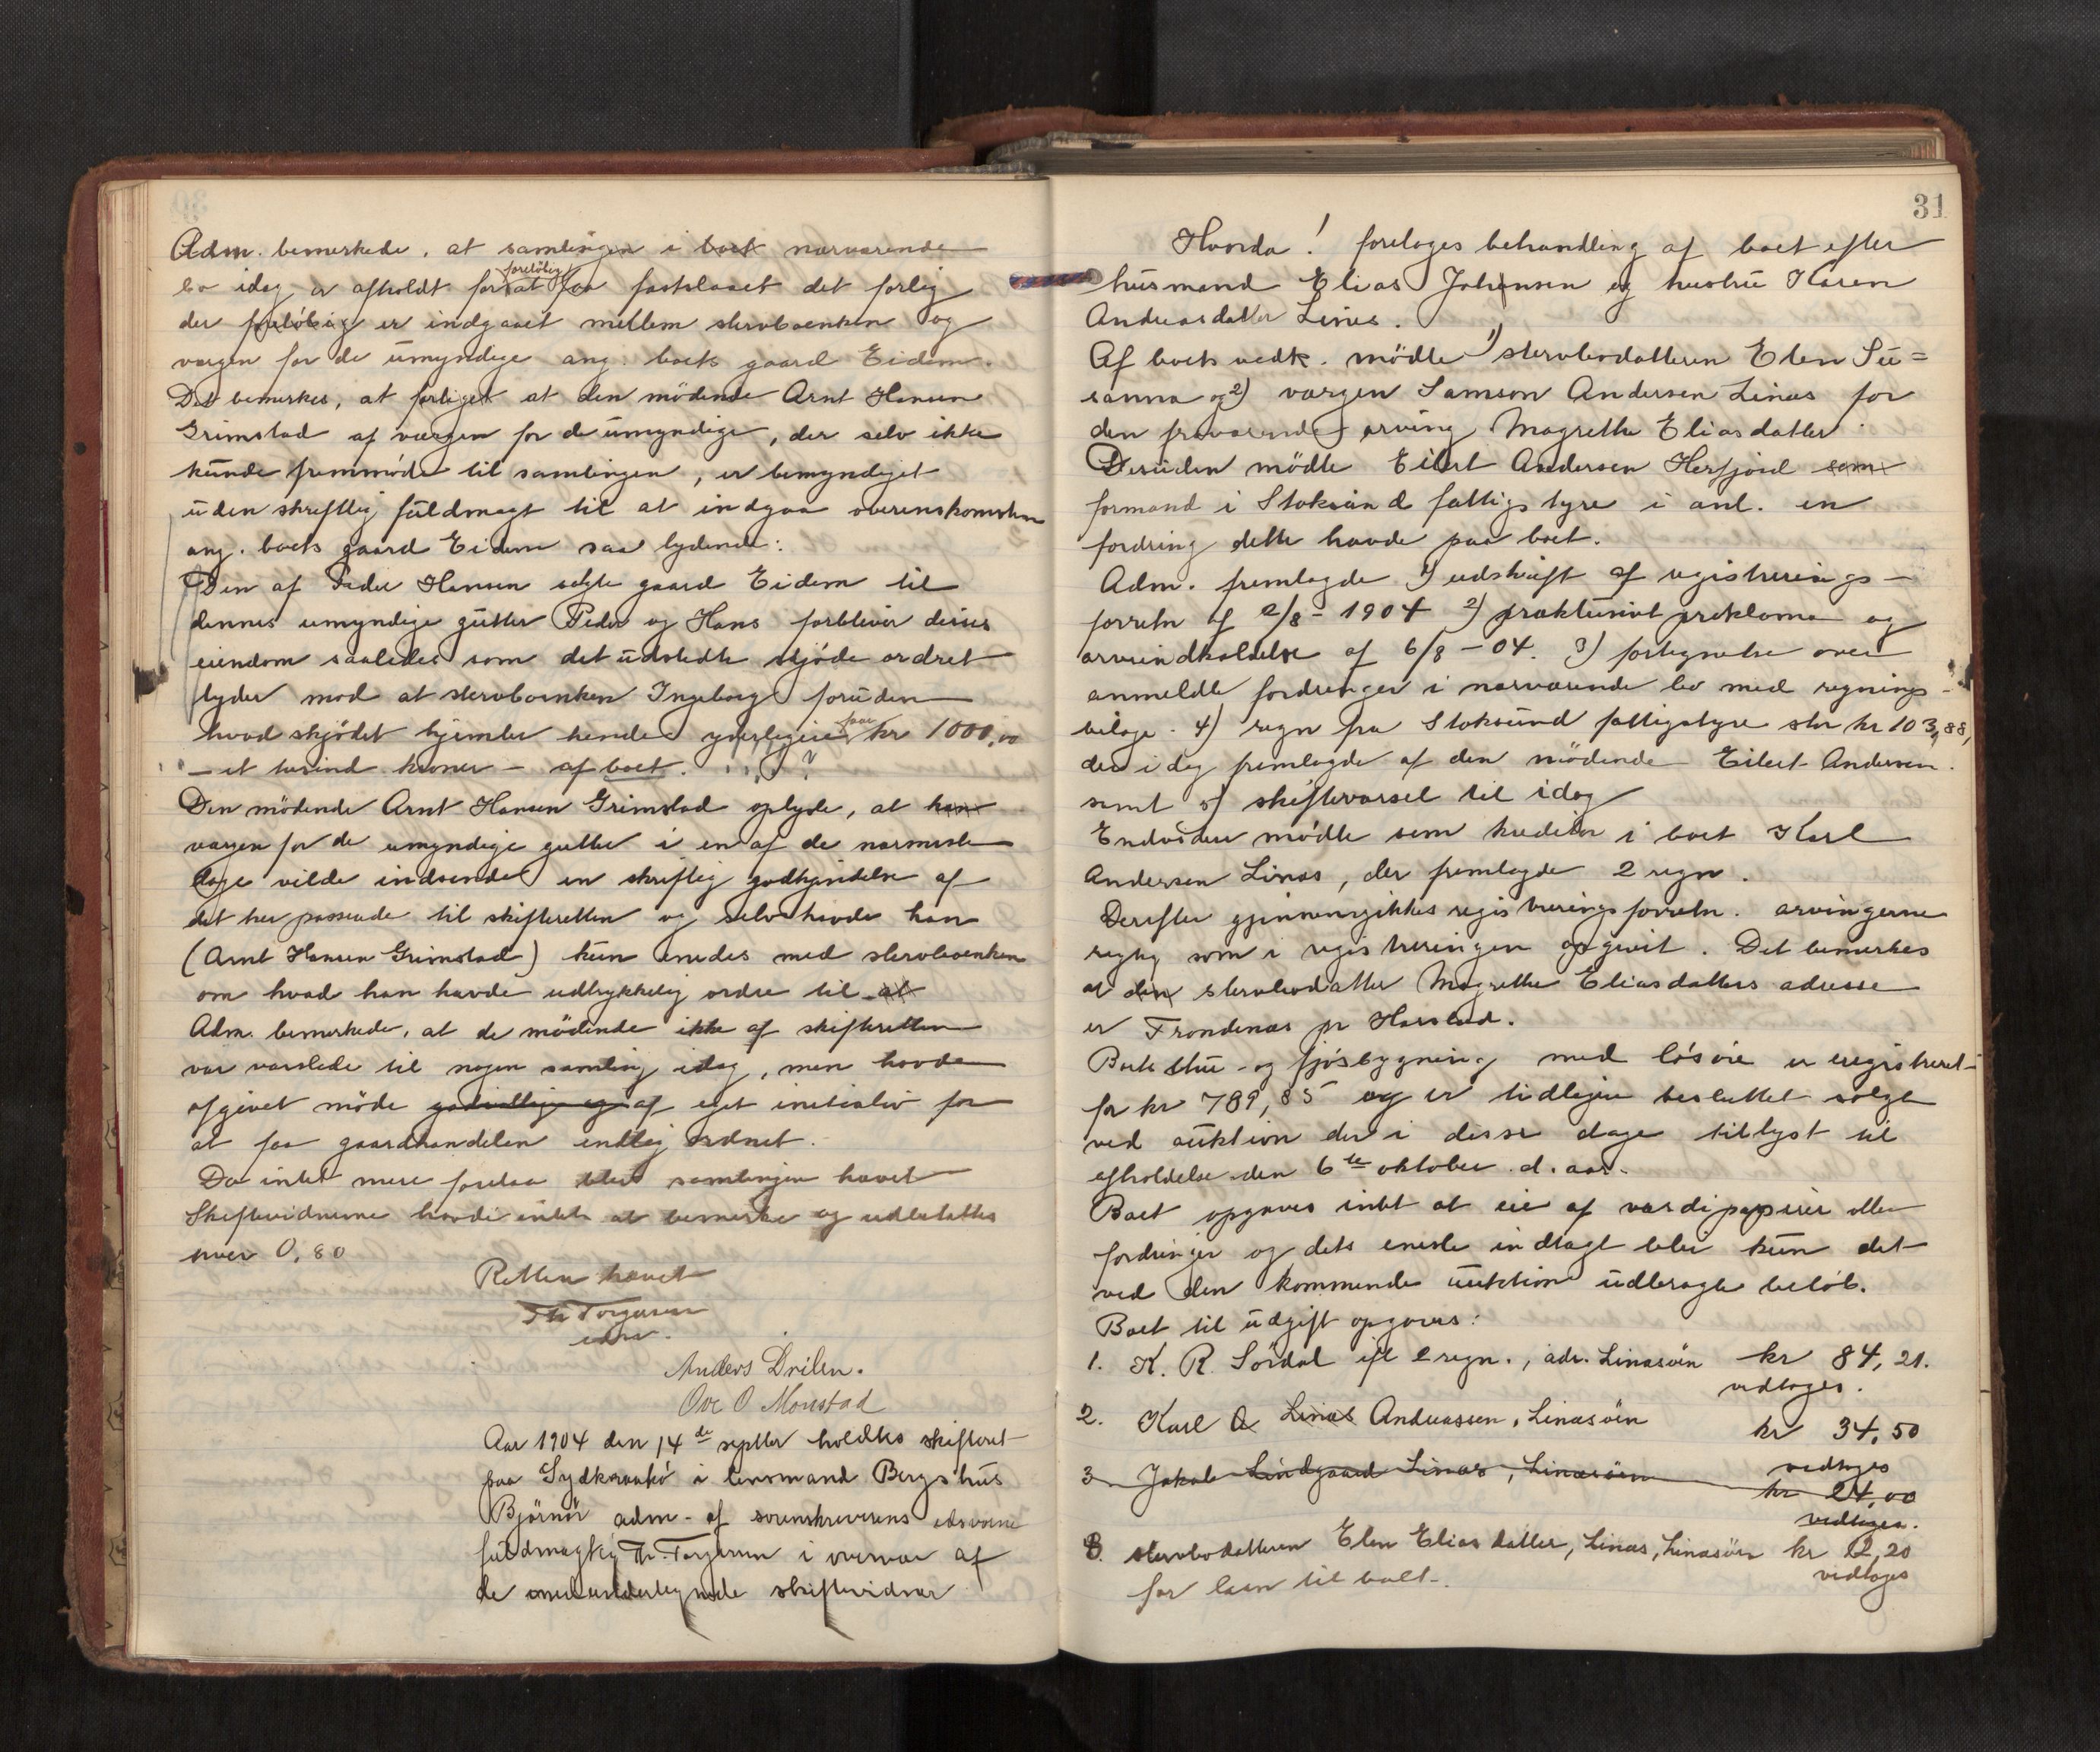 Adm. bemerkede, at samlingen i boet nærværende
bo idag er afholdt for foreløbig at faa fastslaaet det forlig
der foreløbig er indgaaet mellem stervboenken og
værgen for de umyndige ang. boets gaard Eidem.
Det bemerkes, at forliget at den mødende Arnt Hansen
Grimstad af værgen for de umyndige, der selv ikke
kunde fremmøde til samlingen, er bemyndiget
uden skriftlig fuldmagt til at indgaa overenskomsten
ang. boets gaard Eidem saa lydende:
Den af Peder Hansen solgte gaard Eidem til
dennes umyndige gutter Peder og Hans forbliver disses
eiendom saaledes som det udstedte skjøde ordret
lyder mod at stervboenken Ingeborg foruden
hvad skjødet hjemler hende yderligere faar kr 1000,00
– et tusind kroner – af boet.
Den mødende Arnt Hansen Grimstad oplyste, at han
værgen for de umyndige gutter i en af de nærmeste
dage vilde indsende en skriftlig godkjendelse af
det her passerede til skifteretten og selv havde han
(Arnt Hansen Grimstad) kun enedes med stervboenken
om hvad han havde udtrykkelig ordre til at
Adm. bemerkede, at de mødende ikke af skifteretten
var varslede til nogen samling idag, men havde
afgivet møde godvillig og af eget initiativ for
at faa gaardhandelen endlig ordnet.
Da intet mere forelaa blev samlingen hævet
Skiftevidnerne havde intet at bemerke og udbetaltes
hver 0,80
Retten hævet
Th Torgersen
edsv.
Anders Drilen.
Ove O Monstad
Aar 1904 den 14de septbr holdtes skifteret
paa Sydkraakø i lensmand Bergs hus
Bjørnør adm. af sorenskriverens edsvorne
fuldmægtig Th. Torgersen i overvær af
de medundertegnede skiftevidner
31
Hvorda! foretoges behandling af boet efter
husmand Elias Johansen og hustru Karen
Andreasdatter Linæs.
Af boets vedk. mødte 1) stervbodatteren Elen Su=
sanna og 2) værgen Samson Andersen Linæs for
den fraværende arving Magrethe Eliasdatter.
Desuden mødte Eilert Andersen Herfjord som
formand i Stoksund fattigstyre i anl. en
fordring dette havde paa boet.
Adm. fremlagde 1) udskrift af registrerings-
forretn af 2/8 - 1904 2) præklusivt proklama og
arveindkaldelse af 6/8 - 04. 3) fortegnelse over
anmeldte fordringer i nærværende bo med regnings-
bilage. 4) regn fra Stoksund fattigstyre stor kr 103,88,
der idag fremlagde af den mødende Eilert Andersen.
samt 5) skiftevarsel til idag
Endvidere mødte som kreditor i boet Karl
Andersen Linæs, der fremlagde 2 regn.
Derefter gjennemgikkes registreringsforretn. arvingerne
rigtig som i registreringen opgivit. Det bemerkes
at den stervbodatter Magrethe Eliasdatters adresse
er Trondenæs pr Harstad.
Boets stue- og fjøsbygning med løsøre er registreret
for kr 789,85 og er tidligere besluttet solgt
ved auktion der i disse dage tillyst til
afholdelse den 6te oktober d. aar.
Boet opgaves intet at eie af værdipapirer eller
fordringer og dets eneste indtægt blev kun det
ved den kommende auktion udbragte beløb.
Boet til udgift opgaves:
1. K. R. Sørdal ifl 2 regn., adr. Linæsøen kr 84,21.
vedtoges.
2. Karl A Linæs Andreassen, Linæsøen kr 34,50
vedtoges
3 Jakob Lindgaard Linæs, Linæsøen kr 24,00
vedtoges.
3. stervbodatteren Elen Eliasdatter, Linæs, Linæsøen kr 12,20
for laan til boet. vedtoges